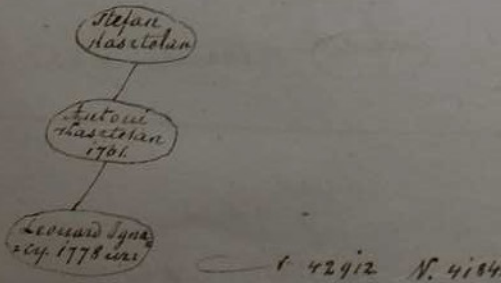 Stefan
Kasztelan
Antoni
Kasztelan
1761.
Leonard Igna
cy. 1778 ur.
42912 N. 4184